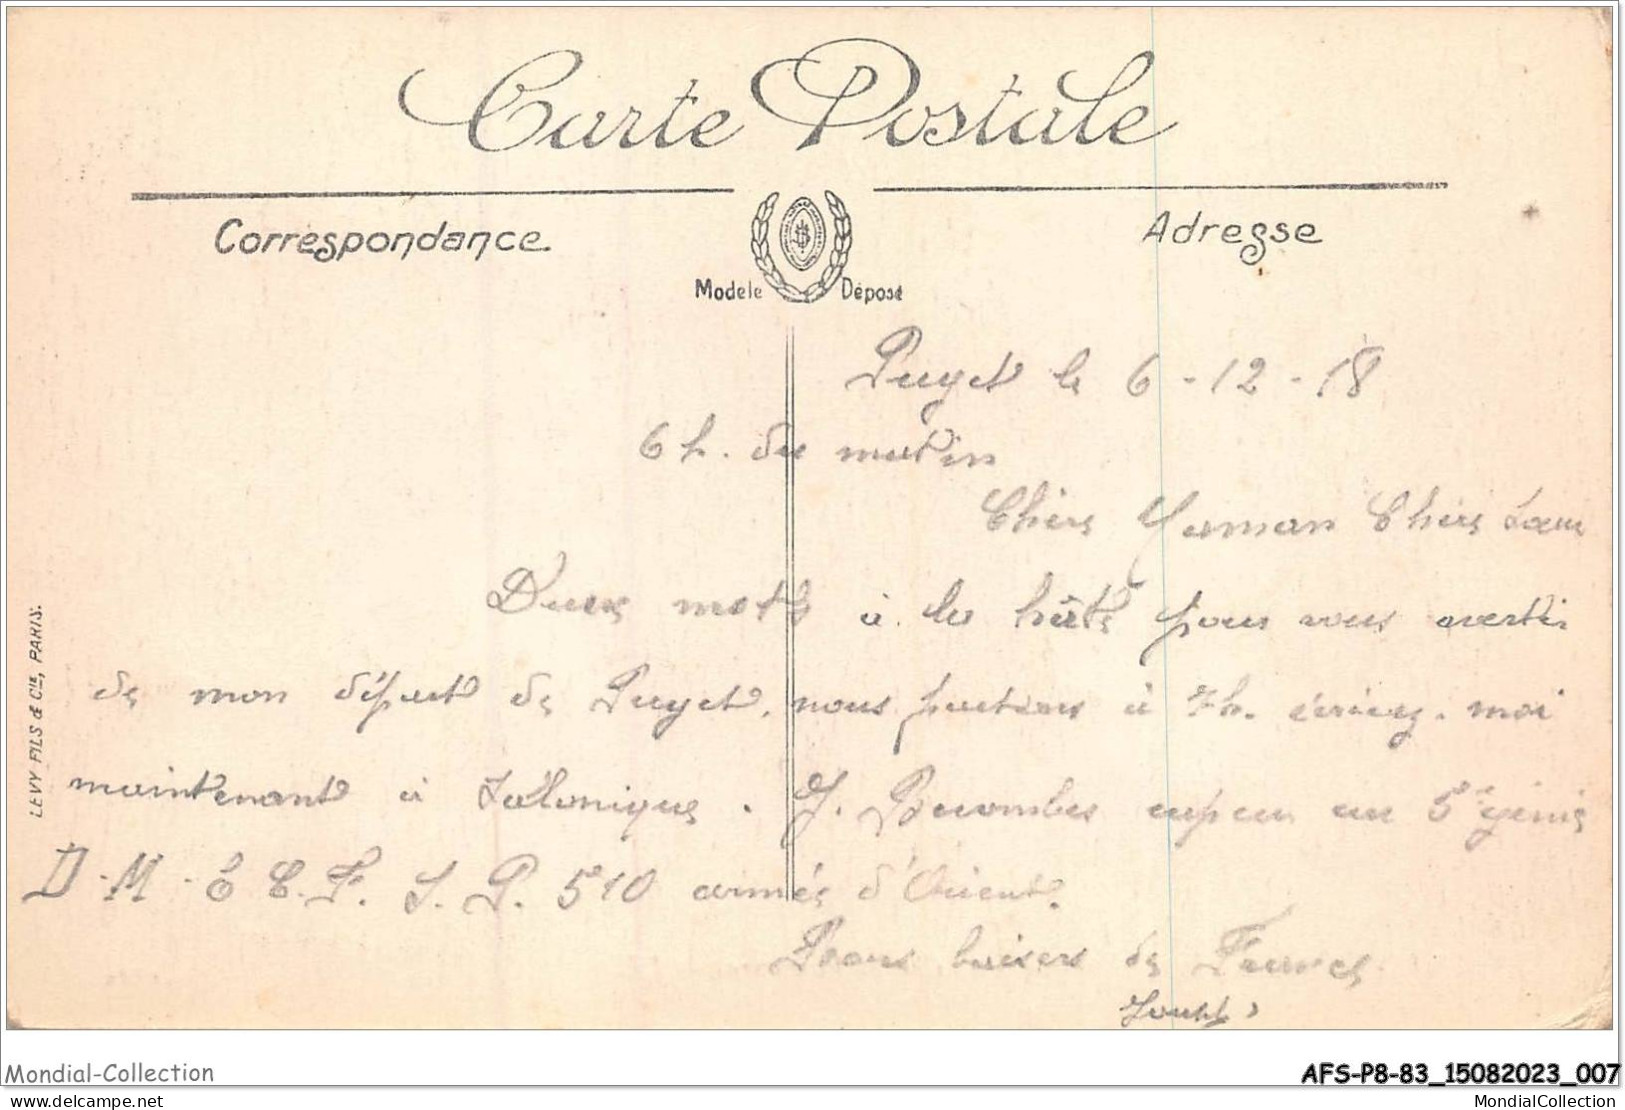 Carte Postale
Correspondance
Adresse
Modele Déposé
LEVY FILS & Cie, PARIS.
Puget le 6-12-18
6 h. du matin
Maman
Deux mots à la hâte pour vous avertir
de mon départ de Puget. nous partons à 7h. écrivez. moi
maintenant à Salonique. J. un 5e génie
D-M-E C.F. S.P. 510 armée d'Orient.
baisers de France
Mondial-Collection
AFS-P8-83_15082023_007
delcampe.net
MondialCollection